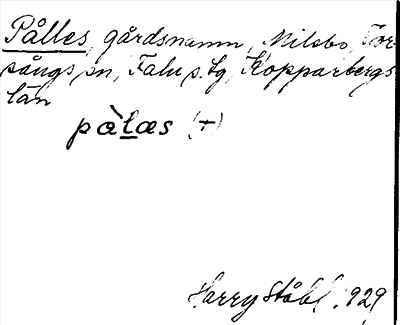 Pålles, gårdsnamn, Milsbo, Tor-
sångs sn, Falu s. tg, Kopparbergs
län
pàlæs (+)
Harry Ståhl. 1929